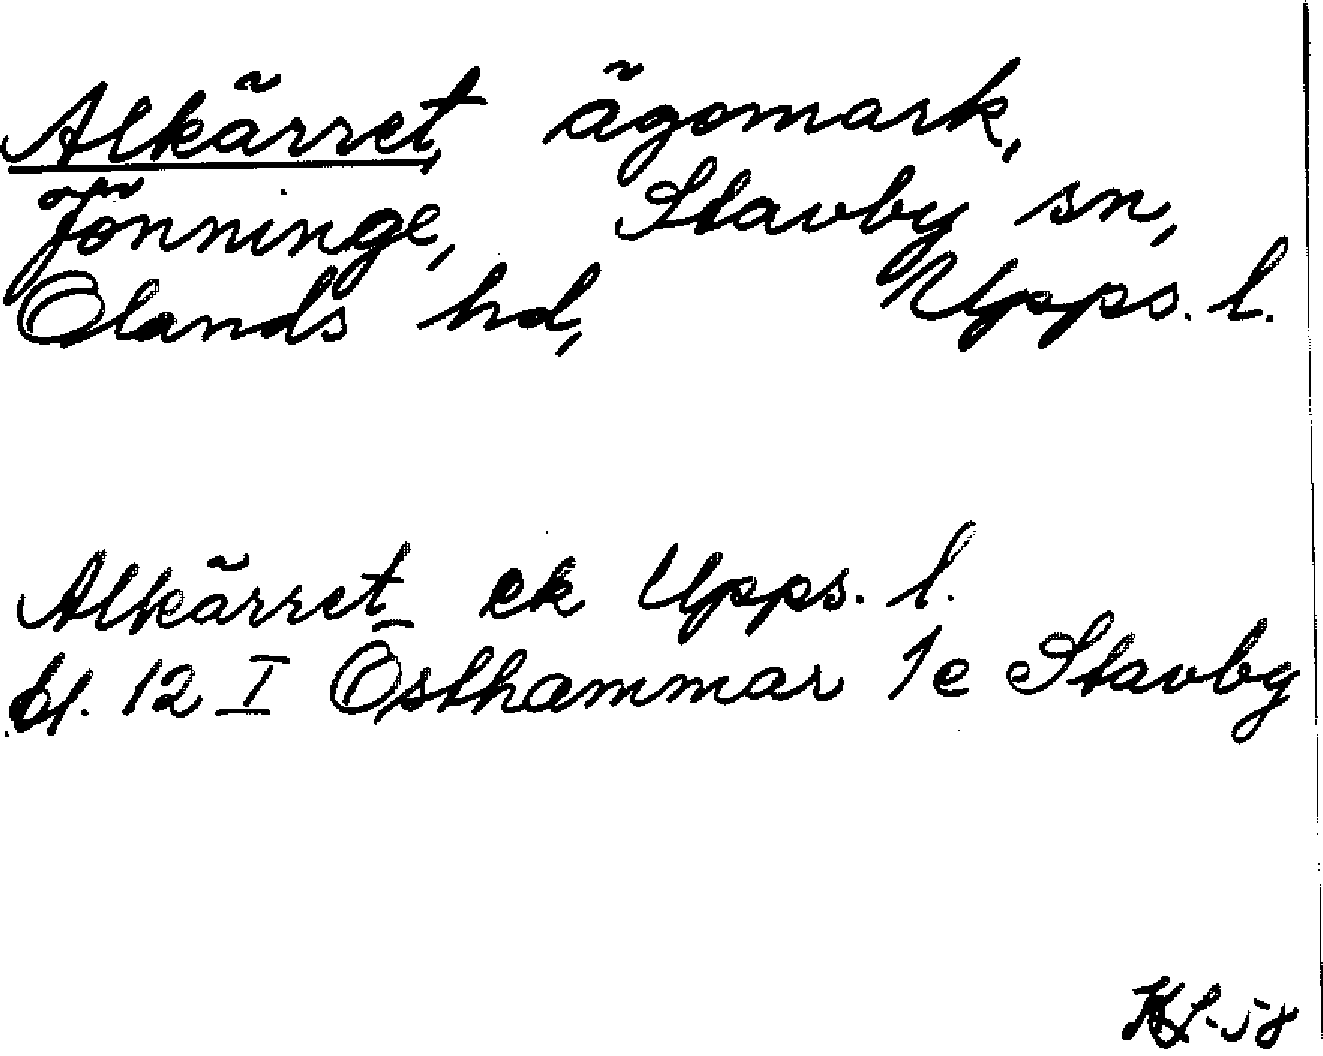 Alkärret, ägomark,
Jönninge, Stavby sn,
Olands hd, Upps. l.
Alkärret ek Upps. l.
bl. 12 I Östhammar 1e Stavby